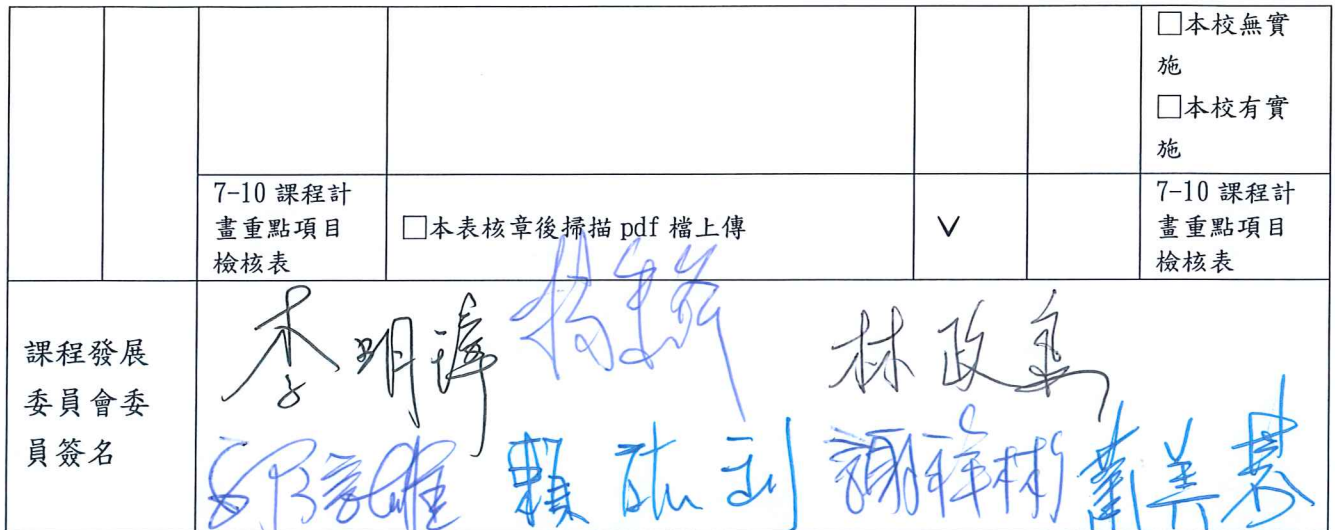 □本校無實
施
□本校有實
施
7-10 課程計
畫重點項目
檢核表
□本表核章後掃描 pdf 檔上傳
V
7-10 課程計
畫重點項目
檢核表
課程發展
委員會委
員簽名
李明
林政
賴
謝祥彬
美慧